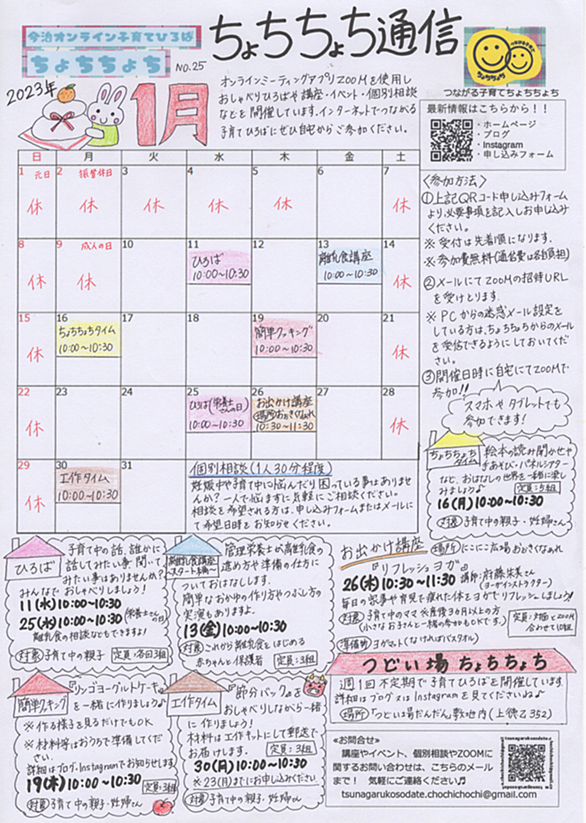 今治オンライン子育てひろば
ちょちちょち
NO.25
ちょちちょち通信
つながる子育てちょちちょち
2023年
1月
オンラインミーティングアプリZOOMを使用し
おしゃべりひろばや講座・イベント・個別相談
などを開催しています。インターネットでつながる
子育てひろばにぜひ自宅からご参加ください。
最新情報はこちらから！！
・ホームページ
・ブログ
・Instagram
・申し込みフォーム
日 月 火 水 木 金 土
1 元日 2 振替休日 3 4 5 6 7
休 休 休 休 休 休
8 9 成人の日 10 11 12 13 14
休 休 ひろば 10:00～10:30 離乳食講座 10:00～10:30 休
15 16 17 18 19 20 21
休 ちょちちょちタイム 10:00～10:30 簡単クッキング 10:00～10:30 休
22 23 24 25 26 27 28
休 ひろば(栄養士さんの日) 10:00～10:30 お出かけ講座 (場所:おおきくなぁれ) 10:30～11:30 休
29 30 31
休 工作タイム 10:00～10:30
個別相談(1人30分程度)
妊娠中や子育て中に悩んだり困っている事はありませ
んか？一人で悩まずにお気軽にご相談ください。
相談を希望される方は、申し込みフォームまたはメールに
て希望日時をお知らせください。
〈参加方法〉
①上記QRコード申し込みフォーム
より、必要事項を記入しお申込み
ください。
※受付は先着順になります。
※参加費無料(通信費は各自負担)
②メールにてZOOMの招待URL
を受けとります。
※PCからの迷惑メール設定を
している方は、ちょちちょちからのメール
を受信できるようにしておいてくだ
さい。
③開催日時に自宅にてZOOMで
参加!!
スマホやタブレットでも
参加できます！
ちょちちょち
タイム
絵本の読み聞かせや
手あそび・パネルシアター
など、おはなしの世界を一緒に楽し
みましょう♪
定員:5組
16(月)10:00～10:30
対象 子育て中の親子・妊婦さん
ひろば
子育て中の話、誰かに
話してみたい事 聞いて
みたい事はありませんか？
みんなで おしゃべりしましょう！
11(水)10:00～10:30
25(水)10:00～10:30(栄養士さんの日)
離乳食の相談などもできますよ!
対象 子育て中の親子
定員:各回3組
離乳食講座
スタート編
管理栄養士が離乳食の
進め方や準備の仕方に
ついておはなしします。
簡単なおかゆの作り方やつぶし方の
実演もありますよ。
13(金)10:00～10:30
対象 これから離乳食をはじめる
赤ちゃんと保護者
定員:3組
お出かけ講座
場所 にこにこ広場おおきくなぁれ
『リフレッシュヨガ』
26(木)10:30～11:30
講師:府藤朱美さん
(ヨーガインストラクター)
毎日の家事や育児で疲れた体をヨガでリフレッシュしましょう!
対象 子育て中のママ ※産後3か月以上の方
(小さなお子さんと一緒の参加もOKです。)
定員:対面とZOOM
合わせて10組
準備物 ヨガマット(なければバスタオル)
簡単クッキング
『リンゴヨーグルトケーキ』
を一緒に作りましょう♪
※作る様子を見るだけでもOK
※材料等はおうちで準備してくだ
さい。
詳細はブログ・Instagramでお知らせします
19(木)10:00～10:30
対象 子育て中の親子・妊婦さん
工作タイム
『節分バッグ』を
おしゃべりしながら一緒
に作りましょう!
材料は工作キットにして郵送で
お届けします。
定員:3組
30(月)10:00～10:30
※23(月)までにお申し込みください
対象 子育て中の親子・妊婦さん
つどい場 ちょちちょち
週1回不定期で子育てひろばを開催しています
詳細はブログ又はInstagramを見てくださいね♪
場所「つどい場だんだん」敷地内(上徳乙352)
<お問合せ>
講座やイベント、個別相談やZOOMに
関するお問い合わせは、こちらのメール
まで！ 気軽にご連絡ください♬
tsunagarukosodate.chochichochi@gmail.com